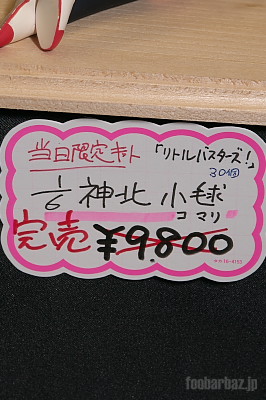 当日限定キット 「リトルバスターズ!」
30個
1/6 神北 小毬
コマリ
完売 ¥9.800
foobarbaz.jp